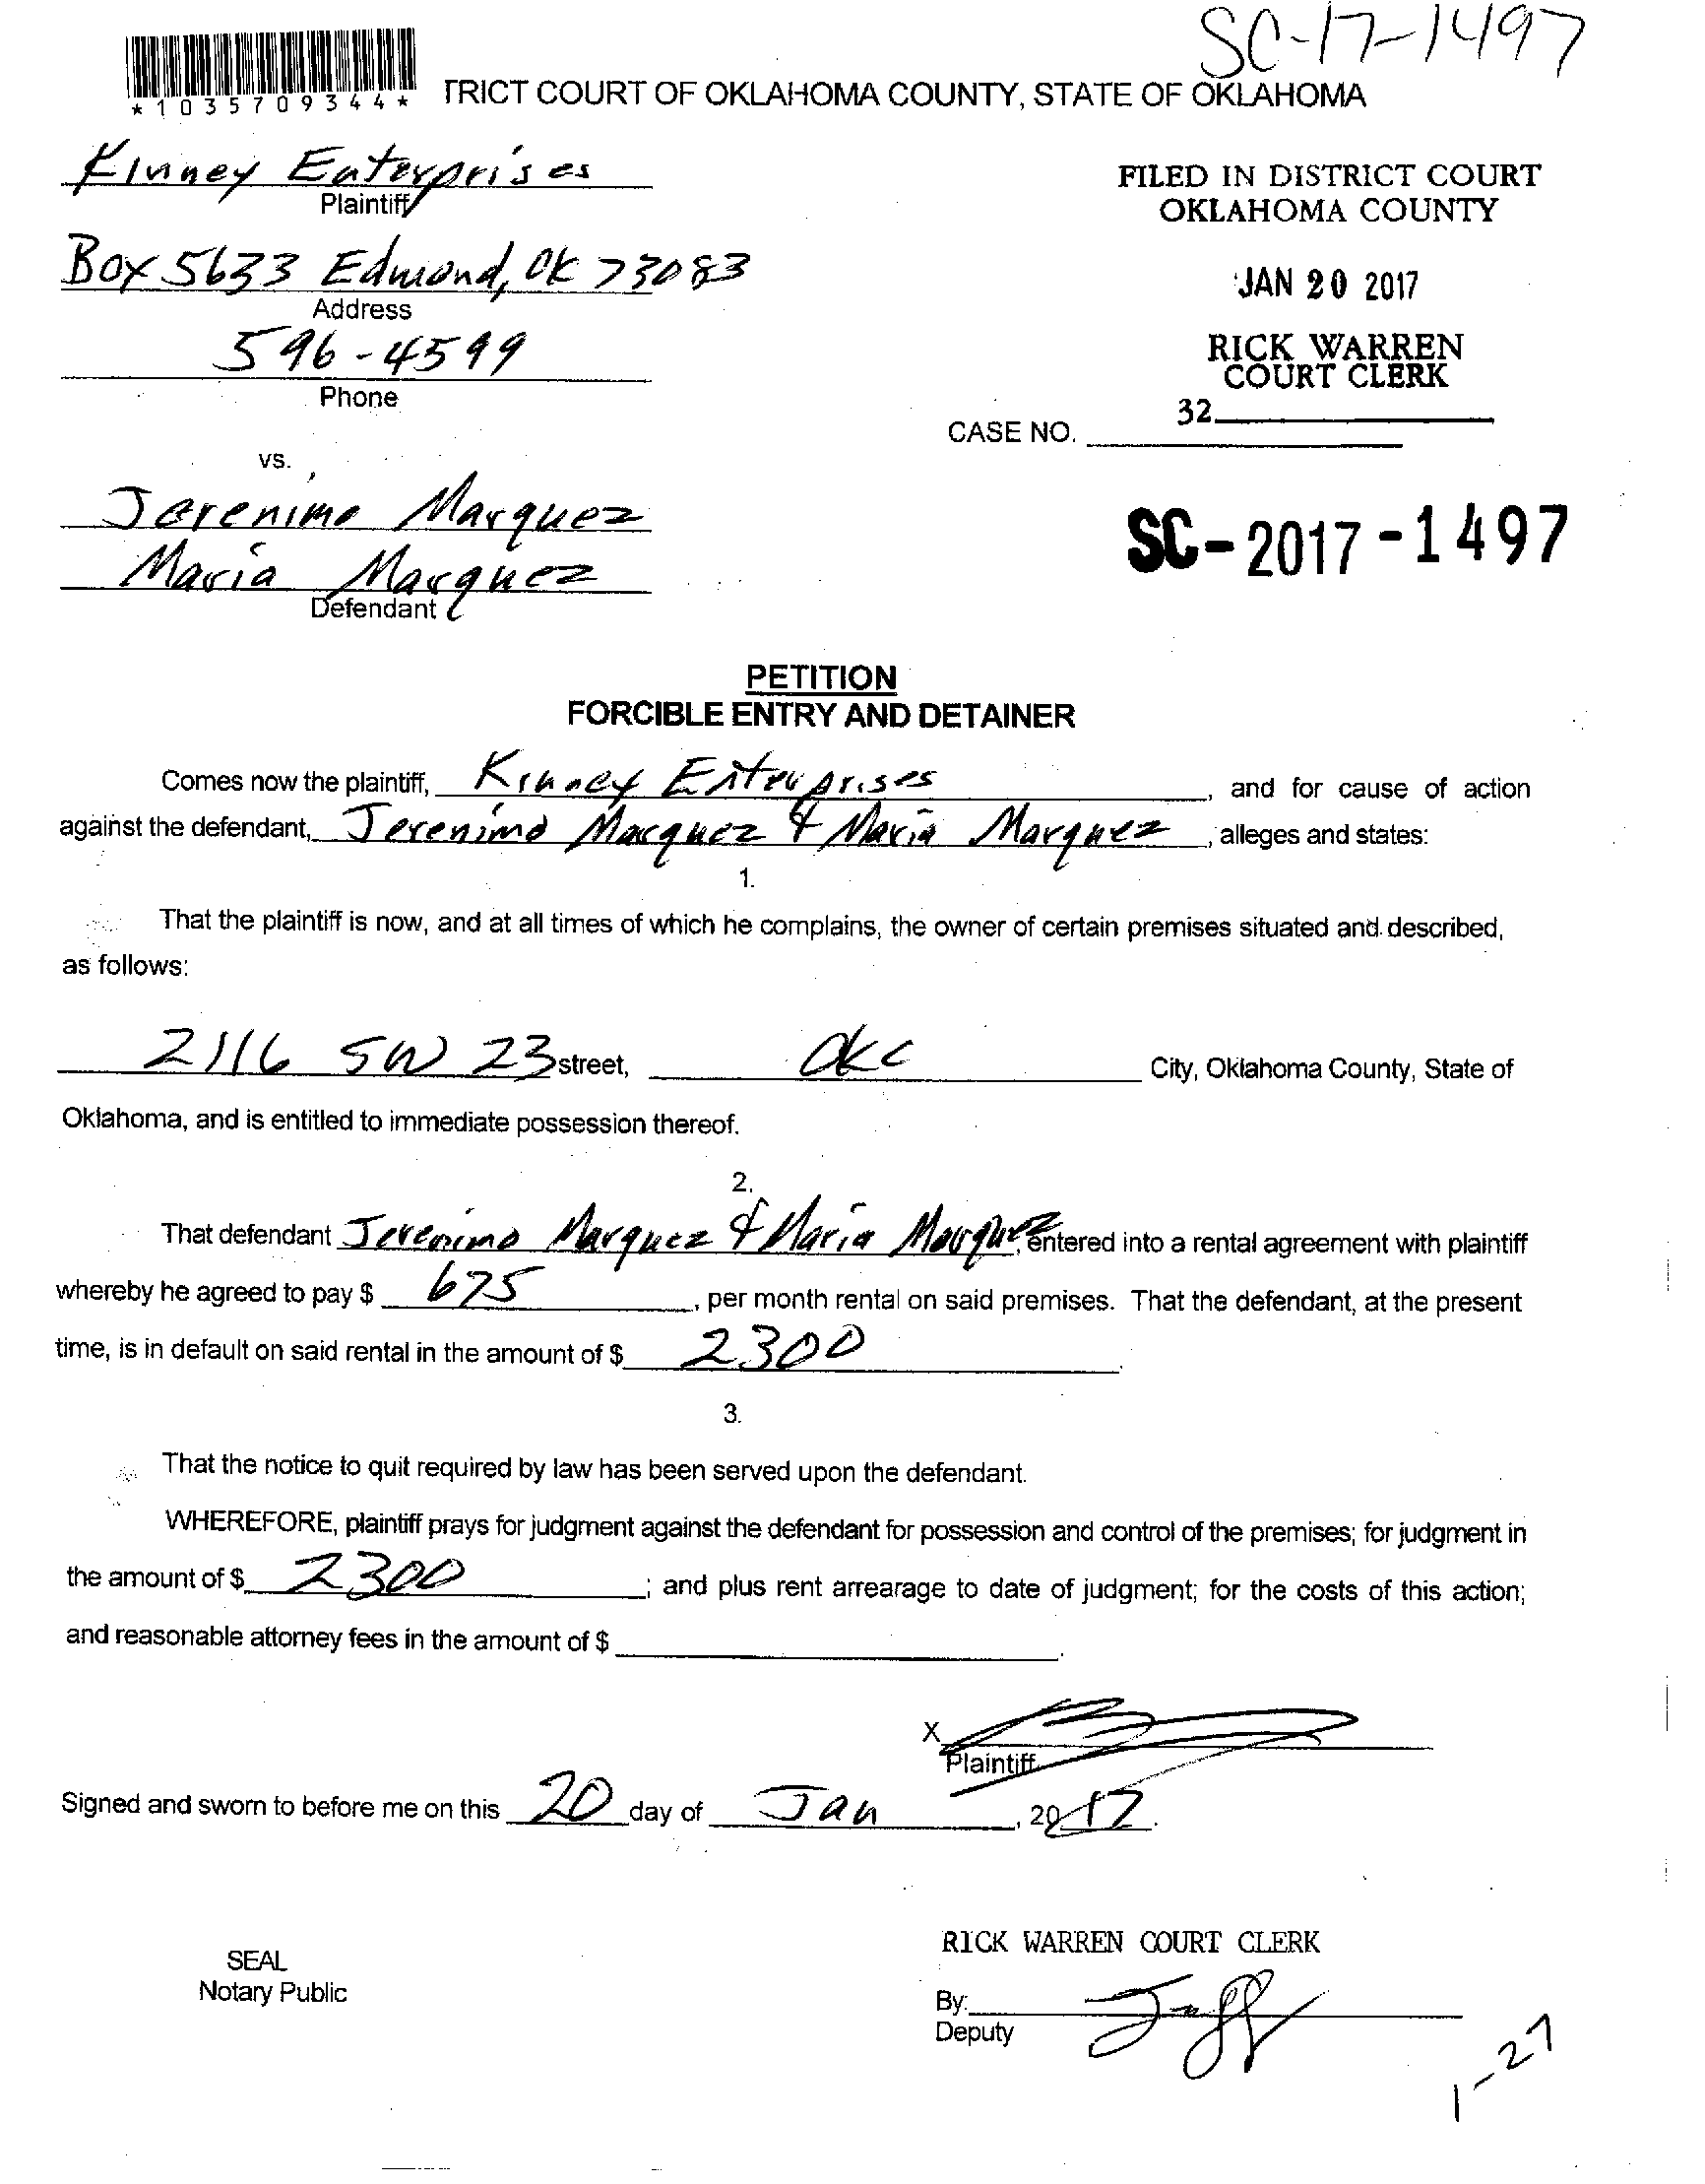 SC-17-1497
*1035709344*
TRICT COURT OF OKLAHOMA COUNTY, STATE OF OKLAHOMA
Kinney Enterprises
Plaintiff
FILED IN DISTRICT COURT
OKLAHOMA COUNTY
Box 5633 Edmond, OK 73083
Address
JAN 20 2017
596-4599
Phone
RICK WARREN
COURT CLERK
32
CASE NO.
vs.
Jerenimo Marquez
Maria Marquez
Defendant
SC-2017-1497
PETITION
FORCIBLE ENTRY AND DETAINER
Comes now the plaintiff, Kinney Enterprises, and for cause of action
against the defendant, Jerenimo Marquez & Maria Marquez, alleges and states:
1.
That the plaintiff is now, and at all times of which he complains, the owner of certain premises situated and described,
as follows:
2116 SW 23 street, OKC City, Oklahoma County, State of
Oklahoma, and is entitled to immediate possession thereof.
2.
That defendant Jerenimo Marquez & Maria Marquez, entered into a rental agreement with plaintiff
whereby he agreed to pay $ 675, per month rental on said premises. That the defendant, at the present
time, is in default on said rental in the amount of $ 2300.
3.
That the notice to quit required by law has been served upon the defendant.
WHEREFORE, plaintiff prays for judgment against the defendant for possession and control of the premises; for judgment in
the amount of $ 2300; and plus rent arrearage to date of judgment; for the costs of this action;
and reasonable attorney fees in the amount of $ .
X
Plaintiff
Signed and sworn to before me on this 20 day of Jan, 2017.
RICK WARREN COURT CLERK
SEAL
Notary Public
By:
Deputy
1-27